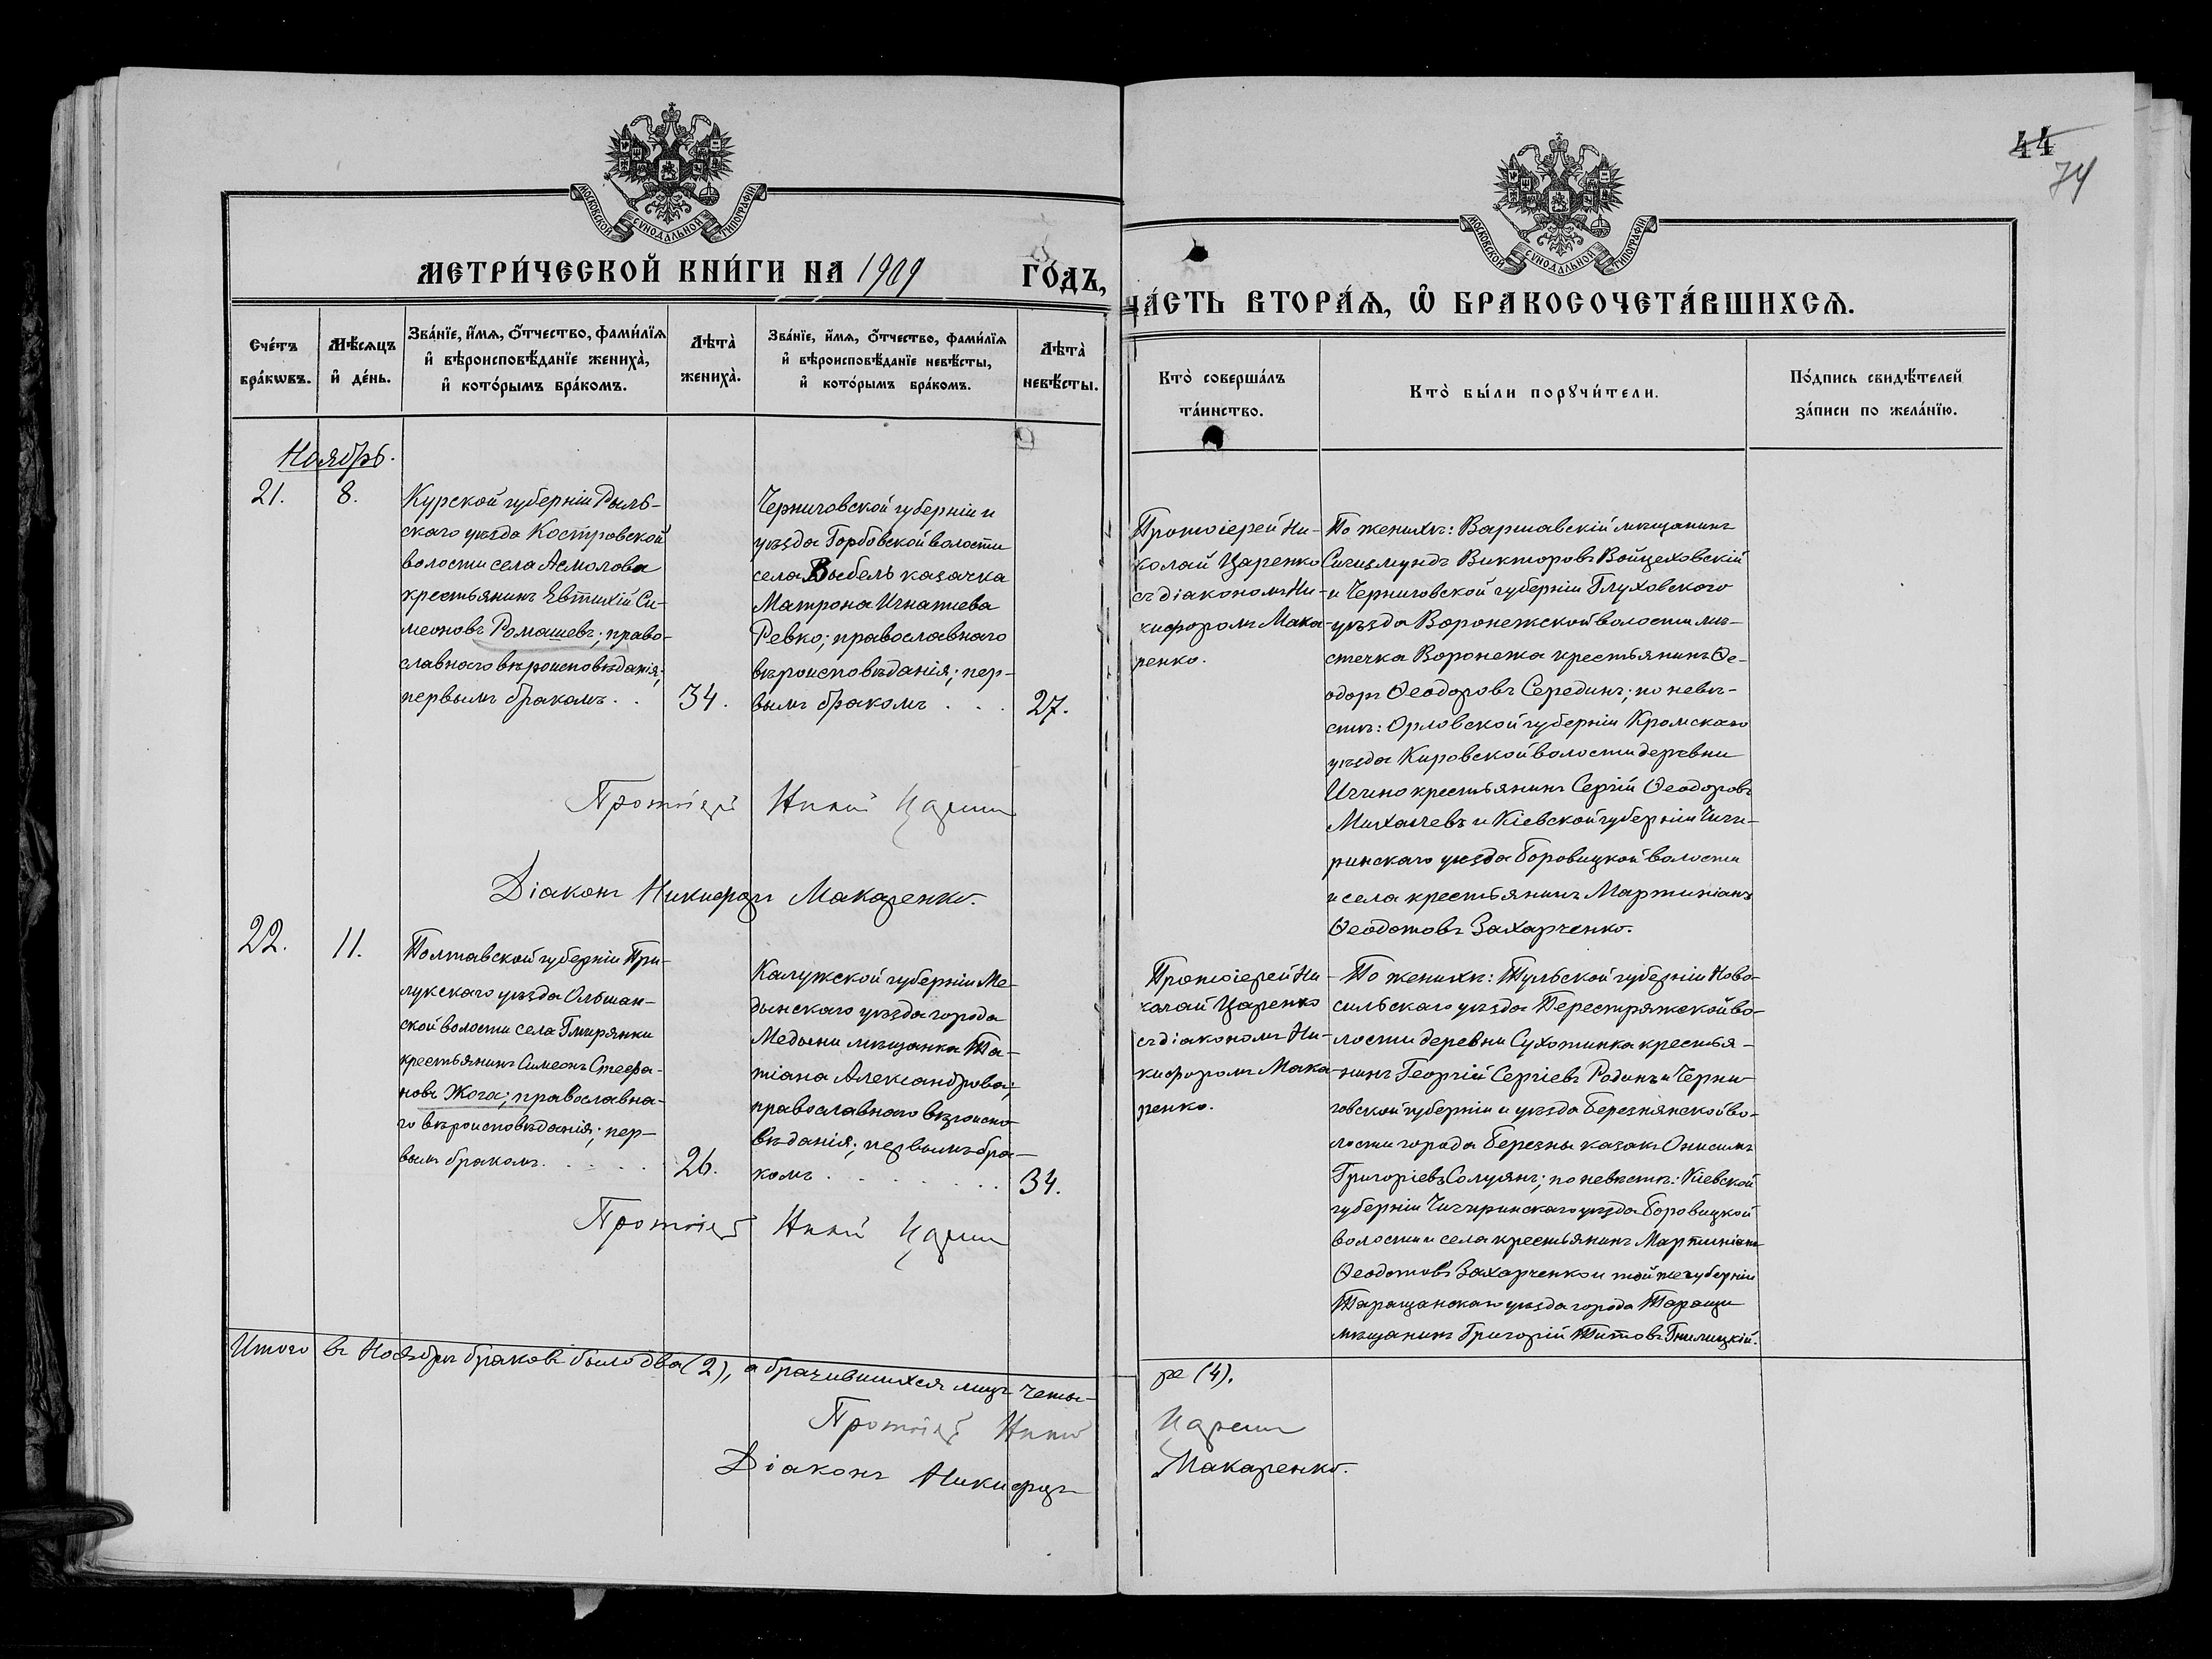 44
74
МОСКОВСКОЙ СѴНОДАЛЬНОЙ ТИПОГРАФІИ
МОСКОВСКОЙ СѴНОДАЛЬНОЙ ТИПОГРАФІИ
МЕТРИ́ЧЕСКОЙ КНИ́ГИ НА 1909 ГО́ДЪ,
ЧА́СТЬ ВТОРА́Ѧ, Ѽ БРАКОСОЧЕТА́ВШИХСѦ.
Сче́тъ бра́кѡвъ.
Мѣ́сѧцъ и҆ де́нь.
Зва́нїе, и҆́мѧ, ѻ҆́тчество, фами́лїѧ и҆ вѣроисповѣ́данїе жениха̀, и҆ кото́рымъ бра́комъ.
Лѣта̀ жениха̀.
Зва́нїе, и҆́мѧ, ѻ҆́тчество, фами́лїѧ и҆ вѣроисповѣ́данїе невѣ́сты, и҆ кото́рымъ бра́комъ.
Лѣта̀ невѣ́сты.
Кто̀ соверша́лъ та́инство.
Кто̀ бы́ли порꙋчи́тели.
По́дпись свидѣ́телей за́писи по жела́нїю.
Ноябрь.
21.
8.
Курской губерніи Рыль-
скаго уѣзда Костровской
волости села Асмолова
крестьянинъ Евтихій Си-
меоновъ Ромашевъ; право-
славнаго вѣроисповѣданія;
первымъ бракомъ . .
34.
Черниговской губерніи и
уѣзда Горбовской волости
села Выбель казачка
Матрона Игнатиева
Ревко; православнаго
вѣроисповѣданія; пер-
вымъ бракомъ . . .
27.
Протоіерей Ни-
колай Царенко
съ діакономъ Ни-
кифоромъ Мака-
ренко.
По женихѣ: Варшавскій мѣщанинъ
Сигизмундъ Викторовъ Войцеховскій
и Черниговской губерніи Глуховского
уѣзда Воронежской волости мѣ-
стечка Воронежа крестьянинъ Ѳе-
одоръ Ѳеодоровъ Серединъ; по невѣ-
стѣ: Орловской губерніи Кромскаго
уѣзда Кировской волости деревни
Ичино крестьянинъ Сергій Ѳеодоровъ
Михалевъ и Кіевской губерніи Чиги-
ринскаго уѣзда Боровицкой волости
и села крестьянинъ Мартиніанъ
Ѳеодотовъ Захарченко.
Протоіерей
Діаконъ Никифоръ Макаренко.
22.
11.
Полтавской губерніи При-
лукскаго уѣзда Ольшан-
ской волости села Гмирянки
крестьянинъ Симеонъ Стефа-
новъ Жога; православна-
го вѣроисповѣданія; пер-
вымъ бракомъ. . . . .
26.
Калужской губерніи Ме-
дынскаго уѣзда города
Медыни мѣщанка Та-
тіана Александрова;
православнаго вѣроиспо-
вѣданія; первымъ бра-
комъ . . . . . . .
34.
Протоіерей Ни-
колай Царенко
съ діакономъ Ни-
кифоромъ Мака-
ренко.
По женихѣ: Тульской губерніи Ново-
сильскаго уѣзда Перестряжской во-
лости деревни Сухотинка крестья-
нинъ Георгій Сергіевъ Родинъ и Черни-
говской губерніи и уѣзда Березнянской во-
лости города Березны казакъ Онисимъ
Григоріевъ Солуянъ; по невѣстѣ: Кіевской
губерніи Чигиринскаго уѣзда Боровицкой
волости и села крестьянинъ Мартиніанъ
Ѳеодотовъ Захарченко и той же губерніи
Таращанскаго уѣзда города Таращи
мѣщанинъ Григорій Титовъ Гнилицкій.
Протоіерей
Итого въ Ноябрѣ браковъ было два (2), а брачившихся лицъ четы-
ре (4).
Протоіерей
Діаконъ Никифоръ Макаренко.